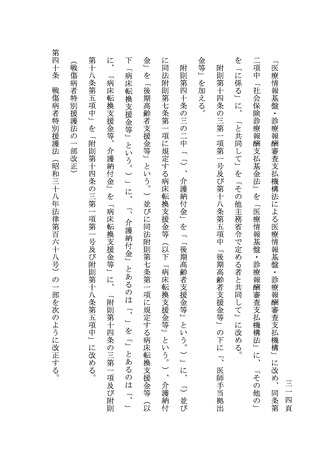 三一四頁
「医療情報基盤・診療報酬審査支払機構法による医療情報基盤・診療報酬審査支払機構」に改め、同条第
二項中「社会保険診療報酬支払基金法」を「医療情報基盤・診療報酬審査支払機構法」に、「その他の」
を「に係る」に、「と共同して」を「その他主務省令で定める者と共同して」に改める。
附則第十四条の三第一項第一号及び第十八条第五項中「後期高齢者支援金等」の下に「、医師手当拠出
金等」を加える。
附則第四十条の三の二中「「）、介護納付金」を「「後期高齢者支援金等」という。）」に、「）並び
に同法附則第七条第一項に規定する病床転換支援金等（以下「病床転換支援金等」という。）、介護納付
金」を「後期高齢者支援金等」という。）並びに同法附則第七条第一項に規定する病床転換支援金等（以
下「病床転換支援金等」という。）」に、「、介護納付金」とあるのは「、」を「」とあるのは「、」
に、「病床転換支援金等、介護納付金」を「病床転換支援金等」に、「附則第十四条の三第一項及び附則
第十八条第五項中」を「附則第十四条の三第一項第一号及び附則第十八条第五項中」に改める。
（戦傷病者特別援護法の一部改正）
第四十条　戦傷病者特別援護法（昭和三十八年法律第百六十八号）の一部を次のように改正する。